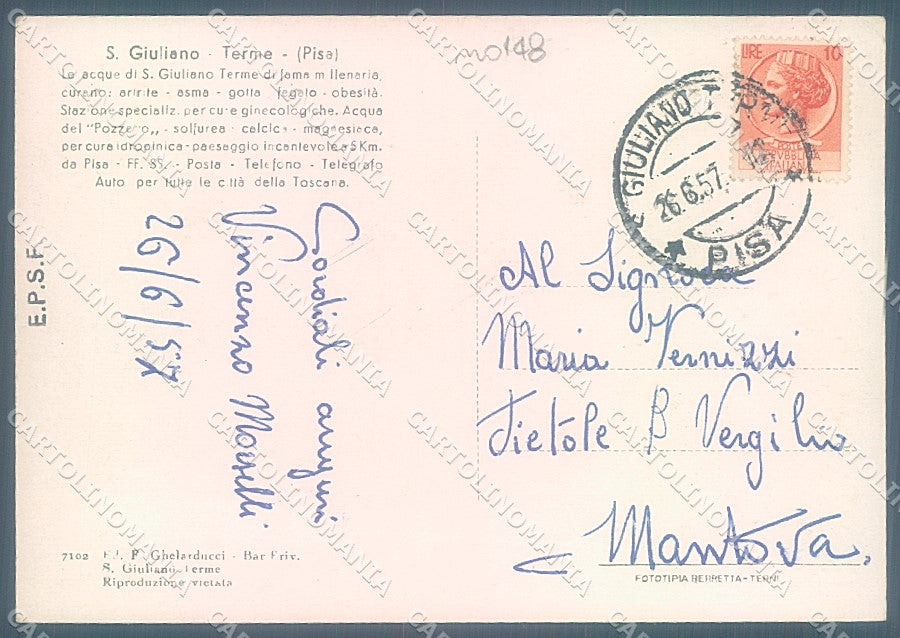 S. Giuliano - Terme - (Pisa)
Le acque di S. Giuliano Terme di fama millenaria,
curano: artrite - asma - gotta - fegato - obesità.
Stazione specializz. per cure ginecologiche. Acqua
del "Pozzetto,, - solfurea - calcica - magnesiaca,
per cura idropinica - paesaggio incantevole a 5 Km.
da Pisa - FF. SS. - Posta - Telefono - Telegrafo
Auto per tutte le città della Toscana.
no 148
LIRE 10
REPUBBLICA
ITALIANA
GIULIANO T
26.6.57.
PISA
E.P.S.F.
Cordiali auguri
Vincenzo
26/6/57
Al Signora
Maria Vernizzi
Pietole P Vergilio
Mantova.
7102 Ed. P. Ghelarducci - Bar Priv.
S. Giuliano Terme
Riproduzione vietata
FOTOTIPIA BERRETTA - TERNI
CARTOLINOMANIA